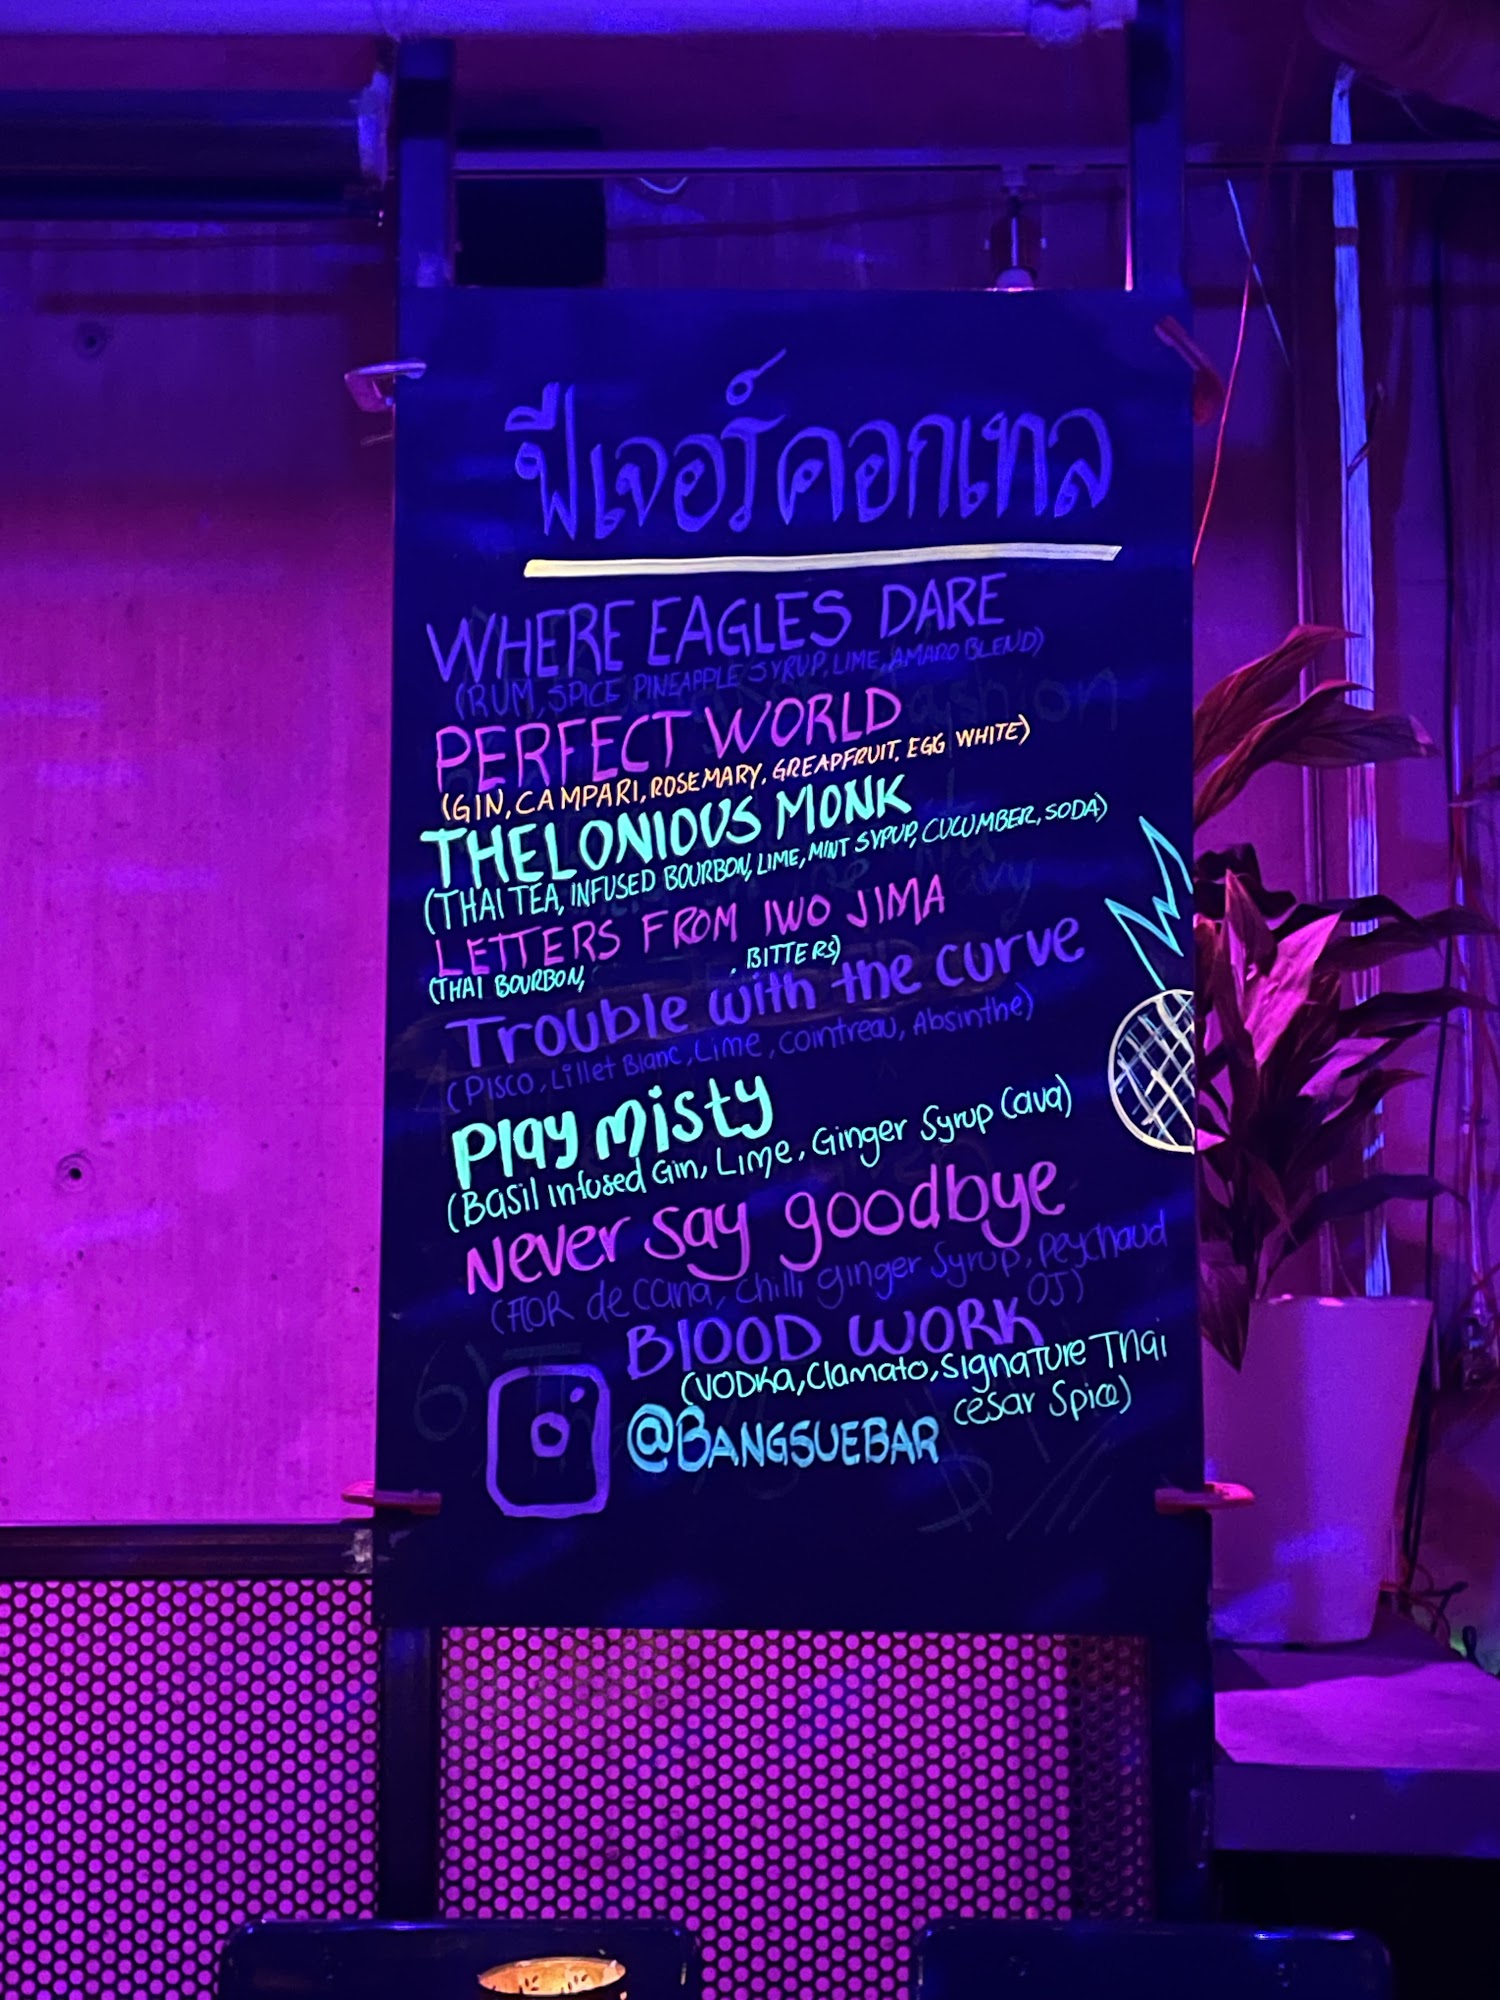 ฟีเจอร์คอกเทล
WHERE EAGLES DARE
(RUM, SPICE PINEAPPLE SYRUP, LIME, AMARO BLEND)
PERFECT WORLD
(GIN, CAMPARI, ROSEMARY, GREAPFRUIT, EGG WHITE)
THELONIOUS MONK
(THAI TEA, INFUSED BOURBON, LIME, MINT SYPUP, CUCUMBER, SODA)
LETTERS FROM IWO JIMA
(THAI BOURBON, , BITTERS)
Trouble with the curve
(PISCO, Lillet Blanc, Lime, cointreau, Absinthe)
Play misty
(Basil infused Gin, Lime, Ginger Syrup Cava)
Never say goodbye
(flor de cana, chilli ginger syrup, peychaud
OJ)
Blood work
(Vodka, Clamato, Signature Thai
cesar Spice)
@BANGSUEBAR